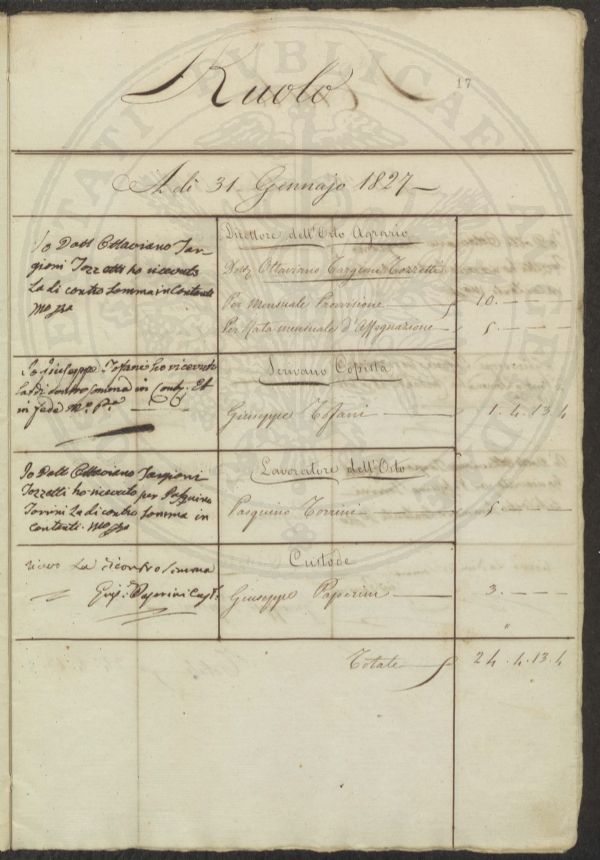 Ruolo
17
A dì 31 Gennajo 1827
Io Dott Ottaviano Tar-
gioni Tozzetti ho ricevuto
La di contro Somma in Contanti
Mo Pria
Direttore dell'Orto Agrario
Dott. Ottaviano Targioni Tozzetti
Per Mensuale Provisione 10. — —
Per Rata mensuale d'Assegnazione 5. — —
Io Giuseppe Tofani ho ricevuto
la di contro somma in Cont. Et
in fede Mo. Pa.
Scrivano Copista
Giuseppe Tofani 1. 4. 13. 4
Io Dott. Ottaviano Targioni
Tozzetti ho ricevuto per Pasquino
Torrini La di contro Somma in
Contanti. Mo Pria
Lavoratore dell'Orto
Pasquino Torrini 5. — —
La di contro Somma
Gius. Paperini Cust.
Custode
Giuseppe Paperini 3. — — —
"
Totale 24. 4. 13. 4
REI PUBLICAE